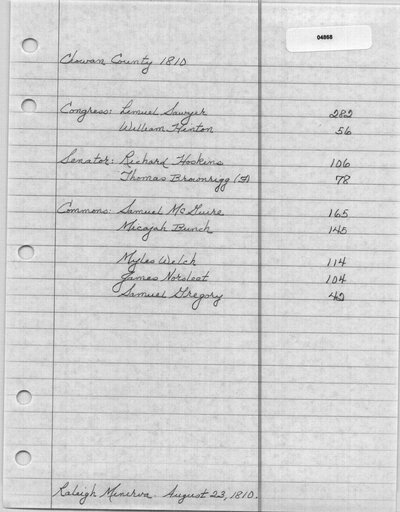 04868
Chowan County 1810
Congress: Lemuel Sawyer 282
William Hinton 56
Senator: Richard Hoskins 106
Thomas Brownrigg (F) 78
Commons: Samuel McGuire 165
Micajah Bunch 145
Myles Welch 114
James Norfleet 104
Samuel Gregory 42
Raleigh Minerva. August 23, 1810.